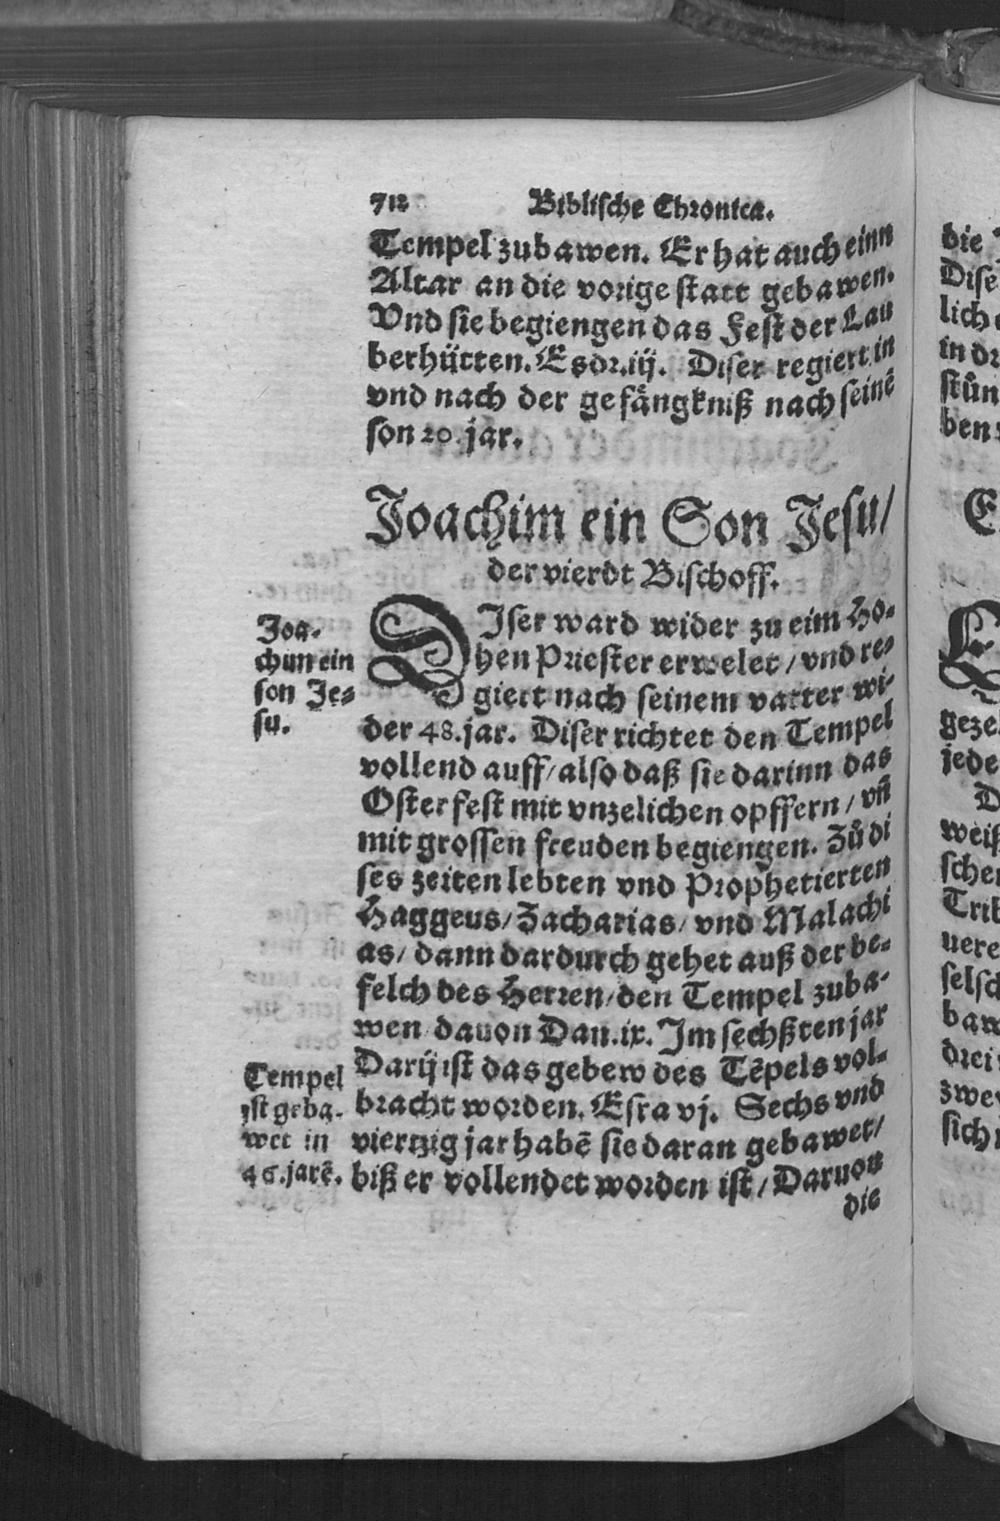 712 Biblische Chronica.
Tempel zubawen. Er hat auch einn
Altar an die vorige statt gebawen.
Vnd sie begiengen das Fest der Lau
berhütten. Esdr. iij. Diser regiert in
vnd nach der gefängkniß nach seinē
son 20. jar.
Joachim ein Son Jesu/
der vierdt Bischoff.
Joa-
chim ein
son Je-
su.
DIser ward wider zu eim Ho-
hen Priester erwelet / vnd re-
giert nach seinem vatter wi-
der 48. jar. Diser richtet den Tempel
vollend auff/ also daß sie darinn das
Osterfest mit vnzelichen opffern / vñ
mit grossen freuden begiengen. Zů di
ses zeiten lebten vnd Prophetierten
Haggeus/ Zacharias/ vnd Malachi
as/ dann dardurch gehet auß der be-
felch des Herren/ den Tempel zuba-
wen dauon Dan. ix. Im sechßten jar
Darij ist das gebew des Tēpels vol-
bracht worden. Esra vj. Sechs vnd
viertzig jar habē sie daran gebawet/
biß er vollendet worden ist / Daruon
Tempel
ist geba-
wet in
46. jarē.
die
die
Dise
lich
in
stůn
ben
E
E
geze
jede
D
weiß
schen
Trib
uere
selsch
baw
drei
zwey
sich